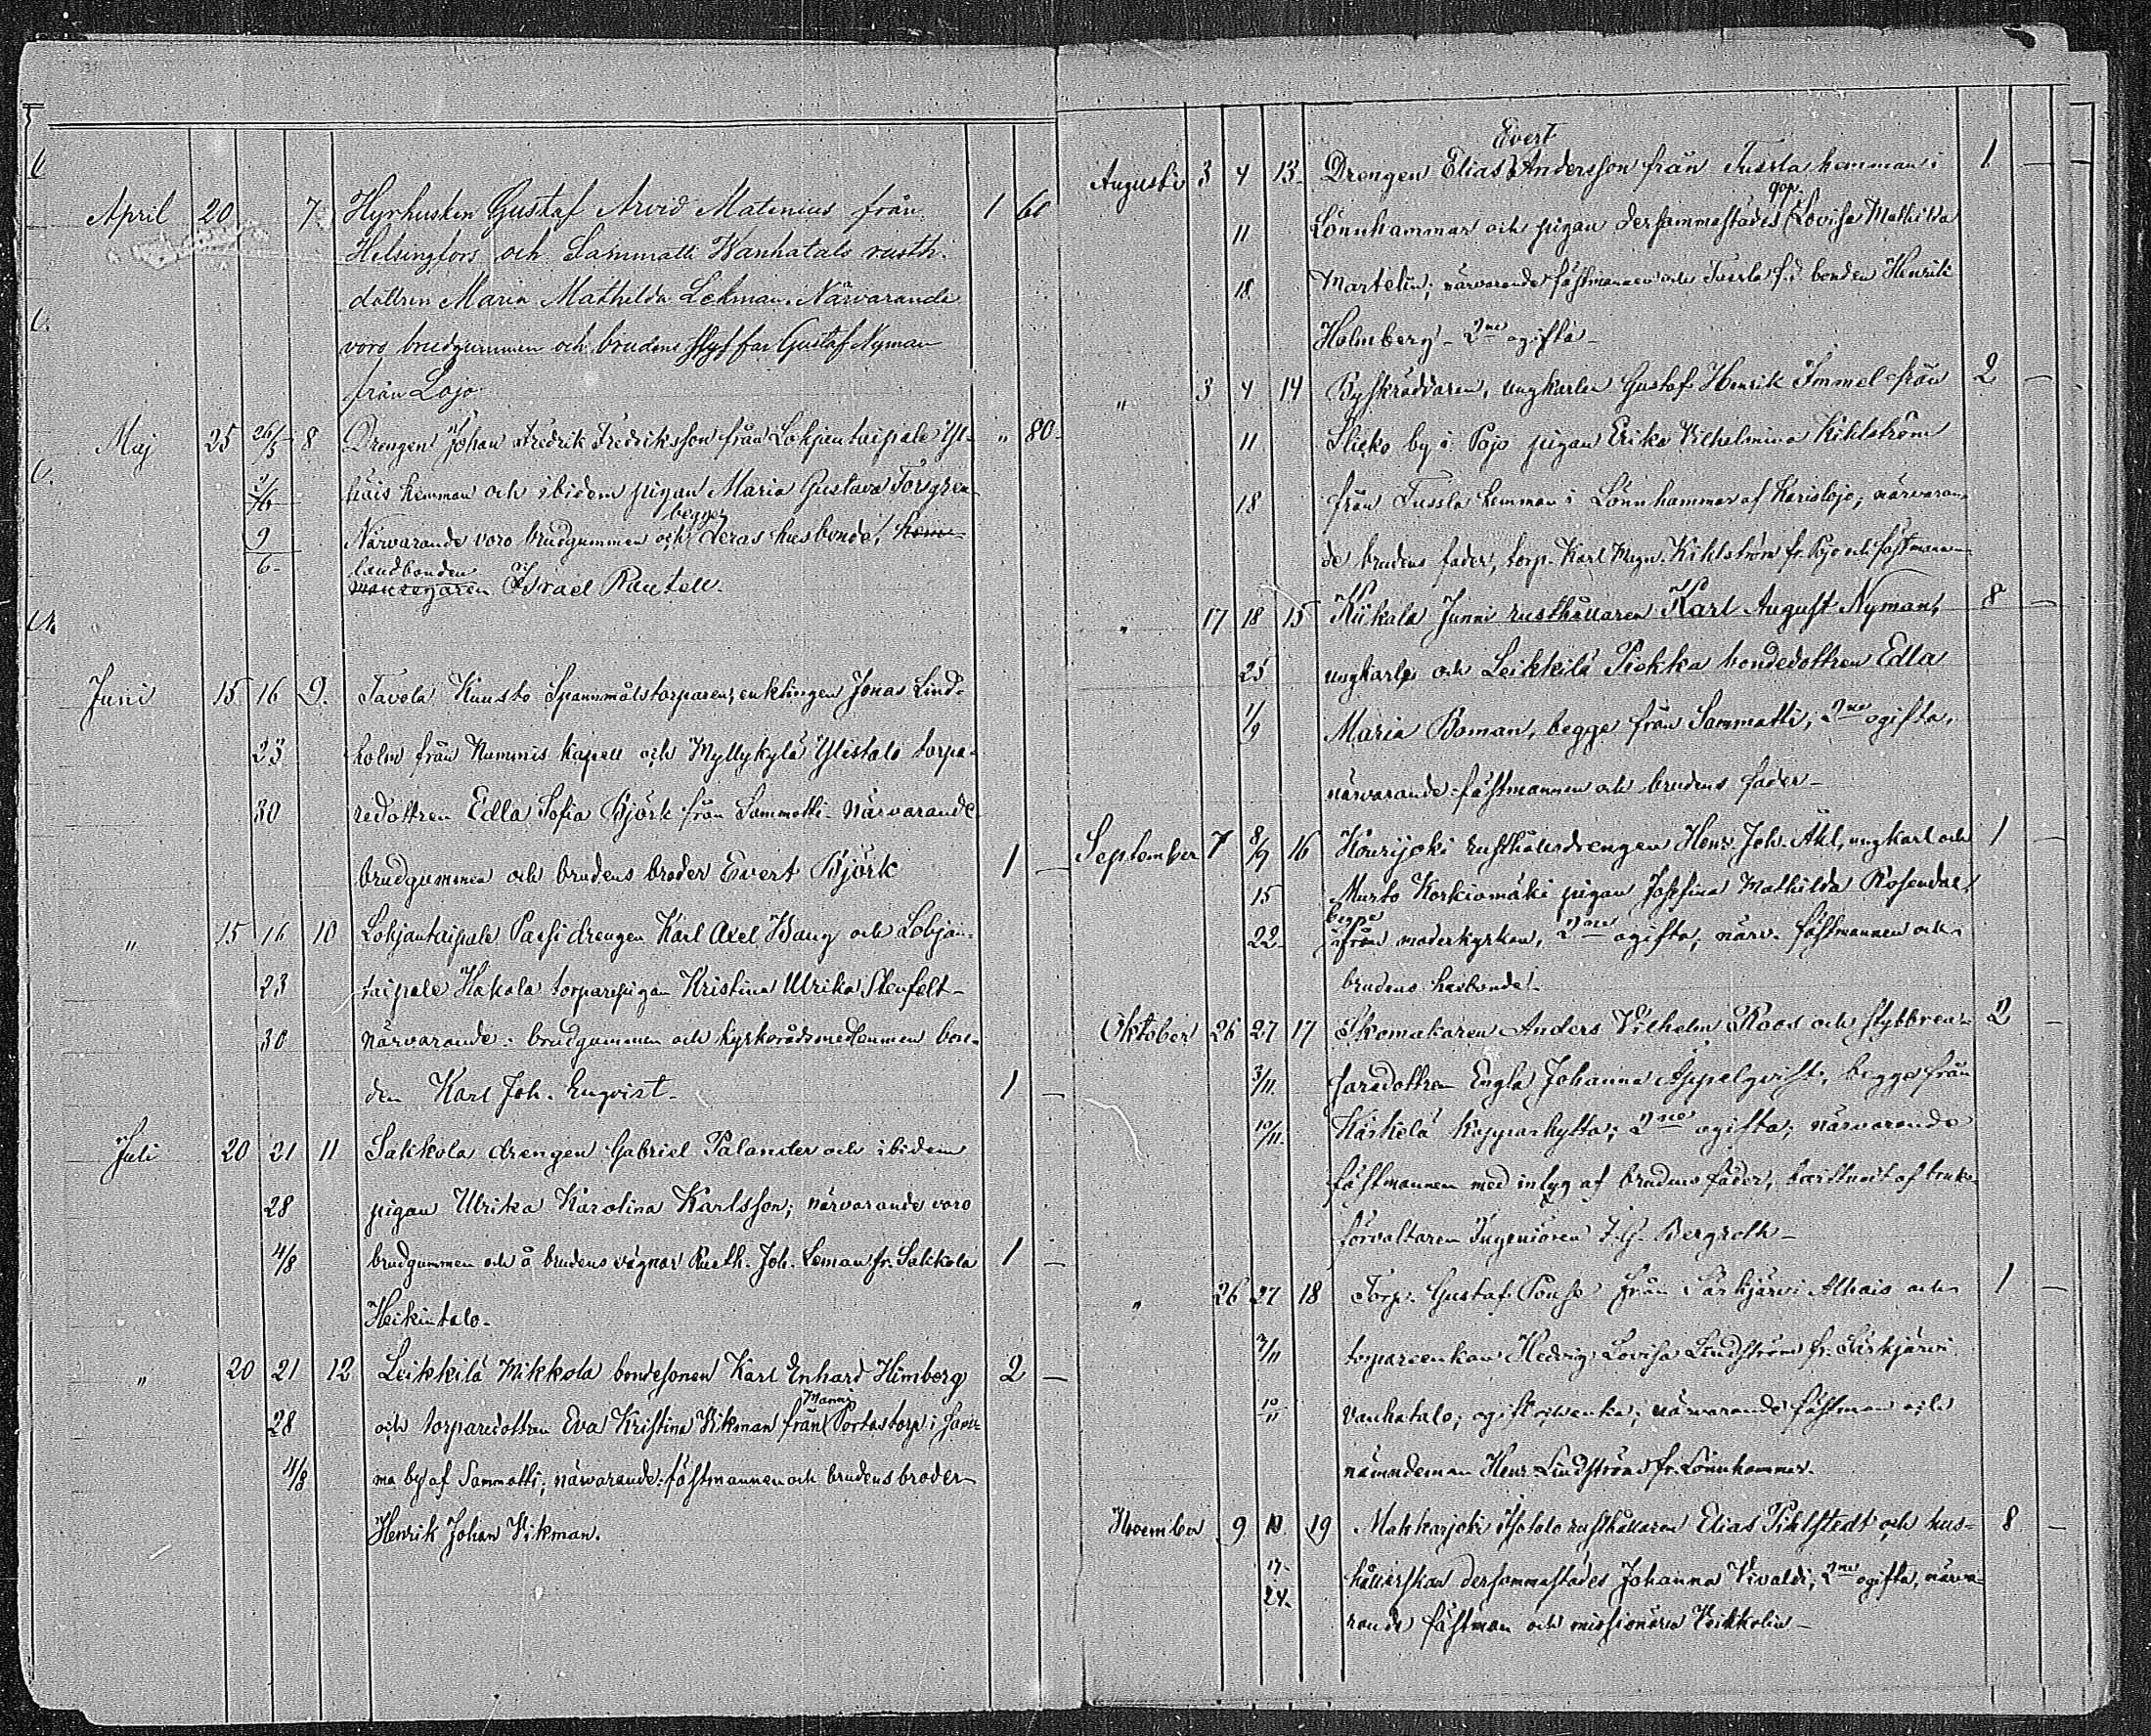 April 20 7. Hyrkusken Gustaf Arvid Matenius från 1 60
Helsingfors och Sammatti Wanhatalo rusth.
dottren Maria Mathilda Lehman. Närvarande
voro brudgummen och brudens styffar Gustaf Nyman
från Lojo
Maj 25 26/5 8 Drengen Johan Fredrik Fredriksson från Lohjantaipale Yl- " 80
häis hemman och ibidem pigan Maria Gustava Forsgren
begges
9 Närvarande voro brudgummen och deras husbonde, hem-
landbonden
6 mansegaren Israel Rautell.
Juni 15 16 9. Tavola Kuusto Spannmålstorparen, enklingen Jonas Lind-
23 holm från Nummis kapell och Myllykylä Ylistalo torpa-
30 redottren Edla Sofia Björk från Sammatti. Närvarande
brudgummen och brudens broder Evert Björk 1 —
" 15 16 10 Lohjantaipale Passi drengen Karl Axel Haug och Lohjan-
23 taipale Hakala torparepigan Kristina Ulrika Stenfelt-
30 närvarande: brudgummen och kyrkorådsmedlemmen bon-
den Karl Joh. Enqvist. 1 —
Juli 20 21 11 Sakkola drengen Gabriel Palander och ibidem
28 pigan Ulrika Karolina Karlsson; närvarande voro
4/8 brudgummen och å brudens vägnar Rusth. Joh. Leman fr. Sakkola 1 —
Heikintalo.
" 20 21 12 Leikkilä Mikkola bondesonen Karl Enhard Himberg 2 —
Manni
28 och torparedottren Eva Kristina Vikman från Portastorp i sam-
4/8 ma by af Sammatti; närvarande: fästmannen och brudens broder
Henrik Johan Vikman.
Evert
Augusti 3 4 13. Drengen Elias Andersson från Tussla hemman i 1 —
qvp.
11 Lönnhammar och pigan dersammastädes Lovisa Mathilda
18 Martelin; närvarande fästmannen och Tussla f.d. bonden Henrik
Holmberg - 2ne ogifta -
" 3 4 14 Byskräddaren, ungkarlen Gustaf Henrik Immel från 2 —
11 Slicko by i Pojo pigan Erika Vilhelmina Kihlström
18 från Tussla hemman i Lönnhammar af Karislojo; närvaran-
de brudens fader, torp. Karl Magn. Kihlström fr. Pojo och fästmannen
" 17 18 15 Kiikala Junni rusthållaren Karl August Nyman, 8 —
25 ungkarl, och Leikkilä Piekka bondedottren Edla
1/9 Maria Boman, begge från Sammatti; 2ne ogifta,
närvarande fästmannen och brudens fader -
September 7 8/9 16 Kourijoki rusthållsdrengen Henr. Joh. Ahl, ungkarl och 1 —
15 Murto Korkiamäki pigan Josefina Mathilda Rosendal
begge
22 från moderkyrkan, 2ne ogifta, närv. fästmannen och
brudens husbonde.
Oktober 26 27 17 Skomakaren Anders Vilhelm Roos och stybbrän- 2 —
3/11 faredottren Engla Johanna Appelqvist, begge från
10/11 Kärkelä kopparhytta; 2ne ogifta; närvarande
fästmannen med intyg af brudens fader, bestyrkt af bruks-
förvaltaren Ingeniören J. G. Bergroth -
" 26 27 18 Torp. Gustaf Ponse från Särkjärvi Alhais och 1 —
3/11 torpareenkan Hedvig Lovisa Lindström fr. Särkjärvi
10/11 Vanhatalo; ogift och enka; närvarande fästman och
nämndeman Henr. Lindström fr. Lönnhammar.
November 9 10 19 Makkarjoki Isotalo rusthållaren Elias Pihlstedt och hus- 8 —
17. hållerskan dersammastädes Johanna Vivaldi; 2ne ogifta, närva-
24. rande fästman och missionären Veikkolin -